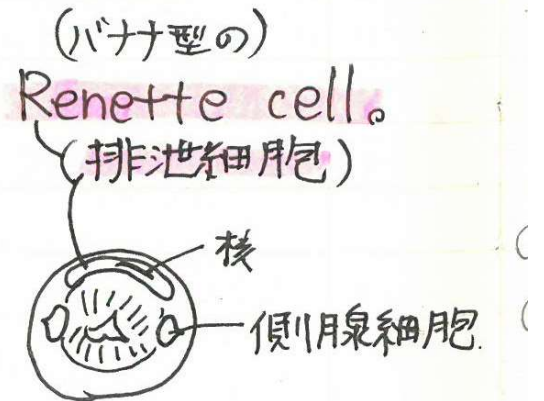 (バナナ型の)
Renette cell。
(排泄細胞)
核
側腺細胞.